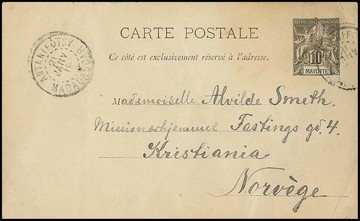 CARTE POSTALE
Ce côté est exclusivement réservé à l'adresse.
10
MAYOTTE
Mademoiselle Alvilde Smeth.
Missionshjemmet Fastings gd 4.
Kristiania
Norvège